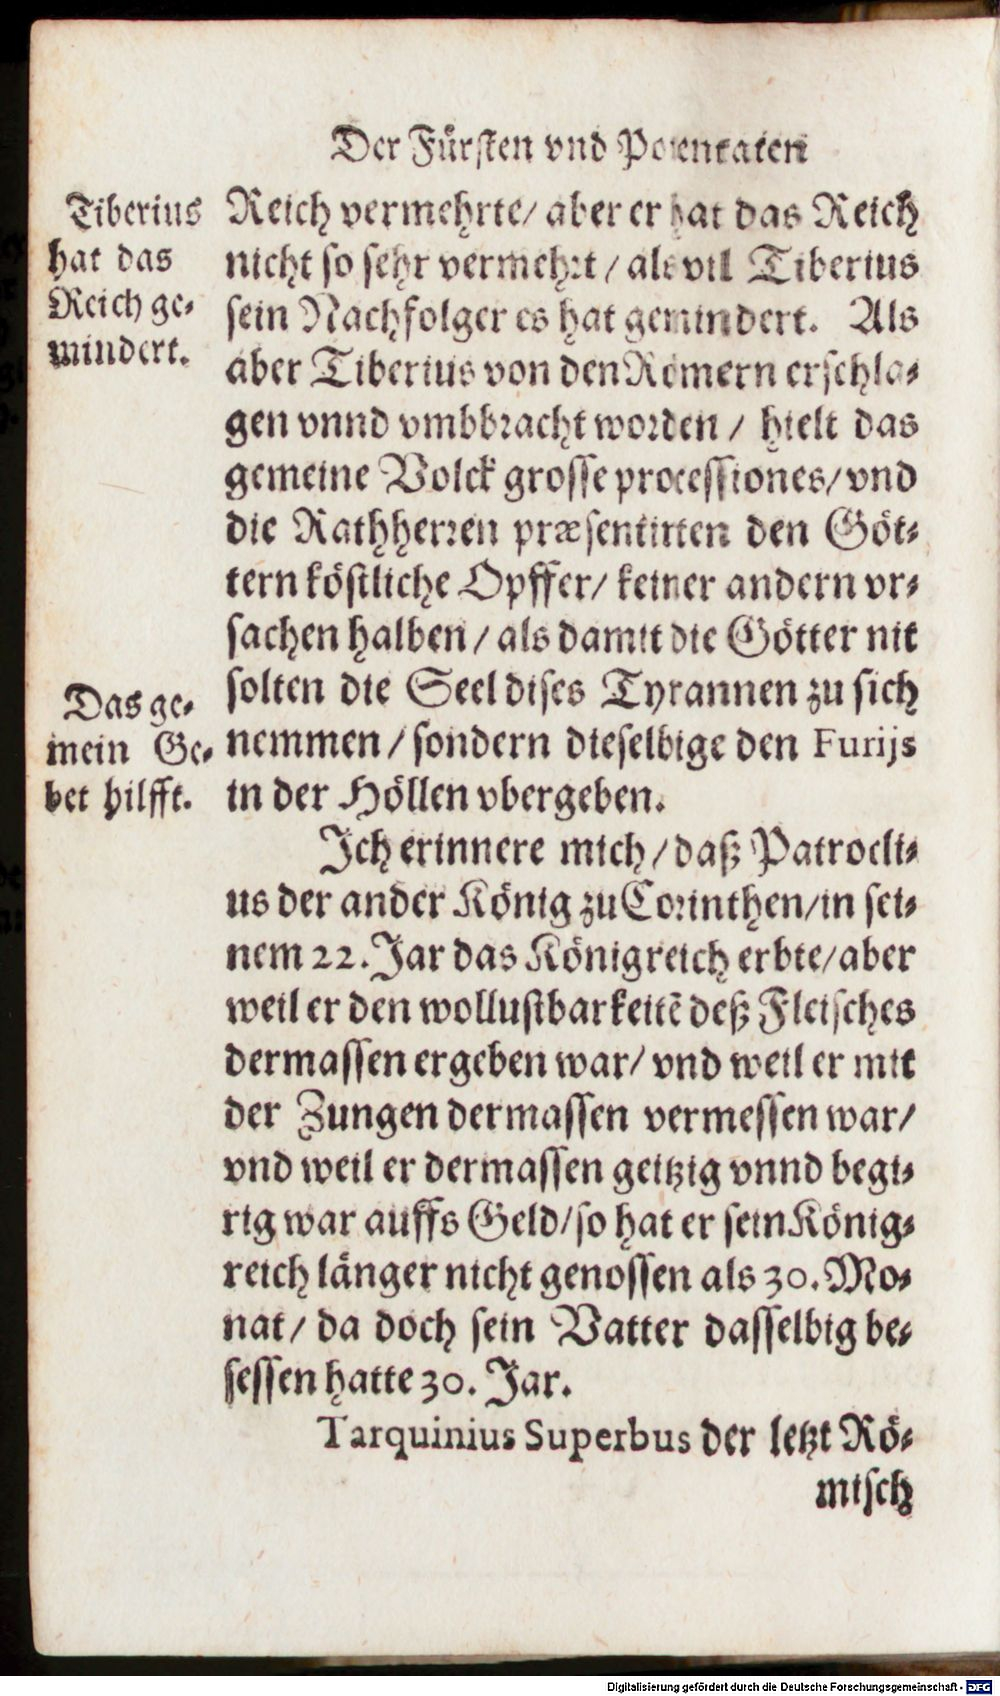 Der Fürsten vnd Potentaten
Tiberius
hat das
Reich ge-
mindert.
Reich vermehrte/ aber er hat das Reich
nicht so sehr vermehrt / als vil Tiberius
sein Nachfolger es hat gemindert. Als
aber Tiberius von den Römern erschla-
gen vnnd vmbbracht worden / hielt das
gemeine Volck grosse processiones/ vnd
die Rathherren præsentirten den Göt-
tern köstliche Opffer/ keiner andern vr-
sachen halben / als damit die Götter nit
solten die Seel dises Tyrannen zu sich
Das ge-
mein Ge-
bet hilfft.
nemmen / sondern dieselbige den Furijs
in der Höllen vbergeben.
Ich erinnere mich / daß Patrocli-
us der ander König zu Corinthen/in sei-
nem 22. Jar das Königreich erbte/ aber
weil er den wollustbarkeitẽ deß Fleisches
dermassen ergeben war/ vnd weil er mit
der Zungen dermassen vermessen war/
vnd weil er dermassen geitzig vnnd begi-
rig war auffs Geld/so hat er sein König-
reich länger nicht genossen als 30. Mo-
nat/ da doch sein Vatter dasselbig be-
sessen hatte 30. Jar.
Tarquinius Superbus der letzt Rö-
misch
Digitalisierung gefördert durch die Deutsche Forschungsgemeinschaft - DFG